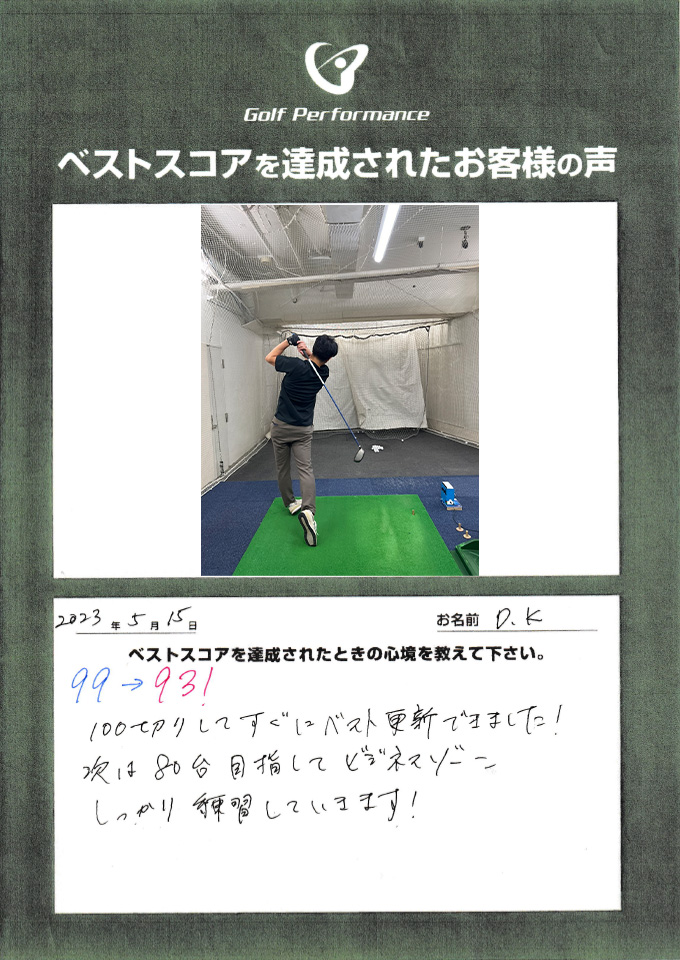 Golf Performance
ベストスコアを達成されたお客様の声
2023年5月15日
お名前 D.K
ベストスコアを達成されたときの心境を教えて下さい。
99→93!
100切りしてすぐにベスト更新できました!
次は80台目指してビジネスゾーン
しっかり練習していきます!